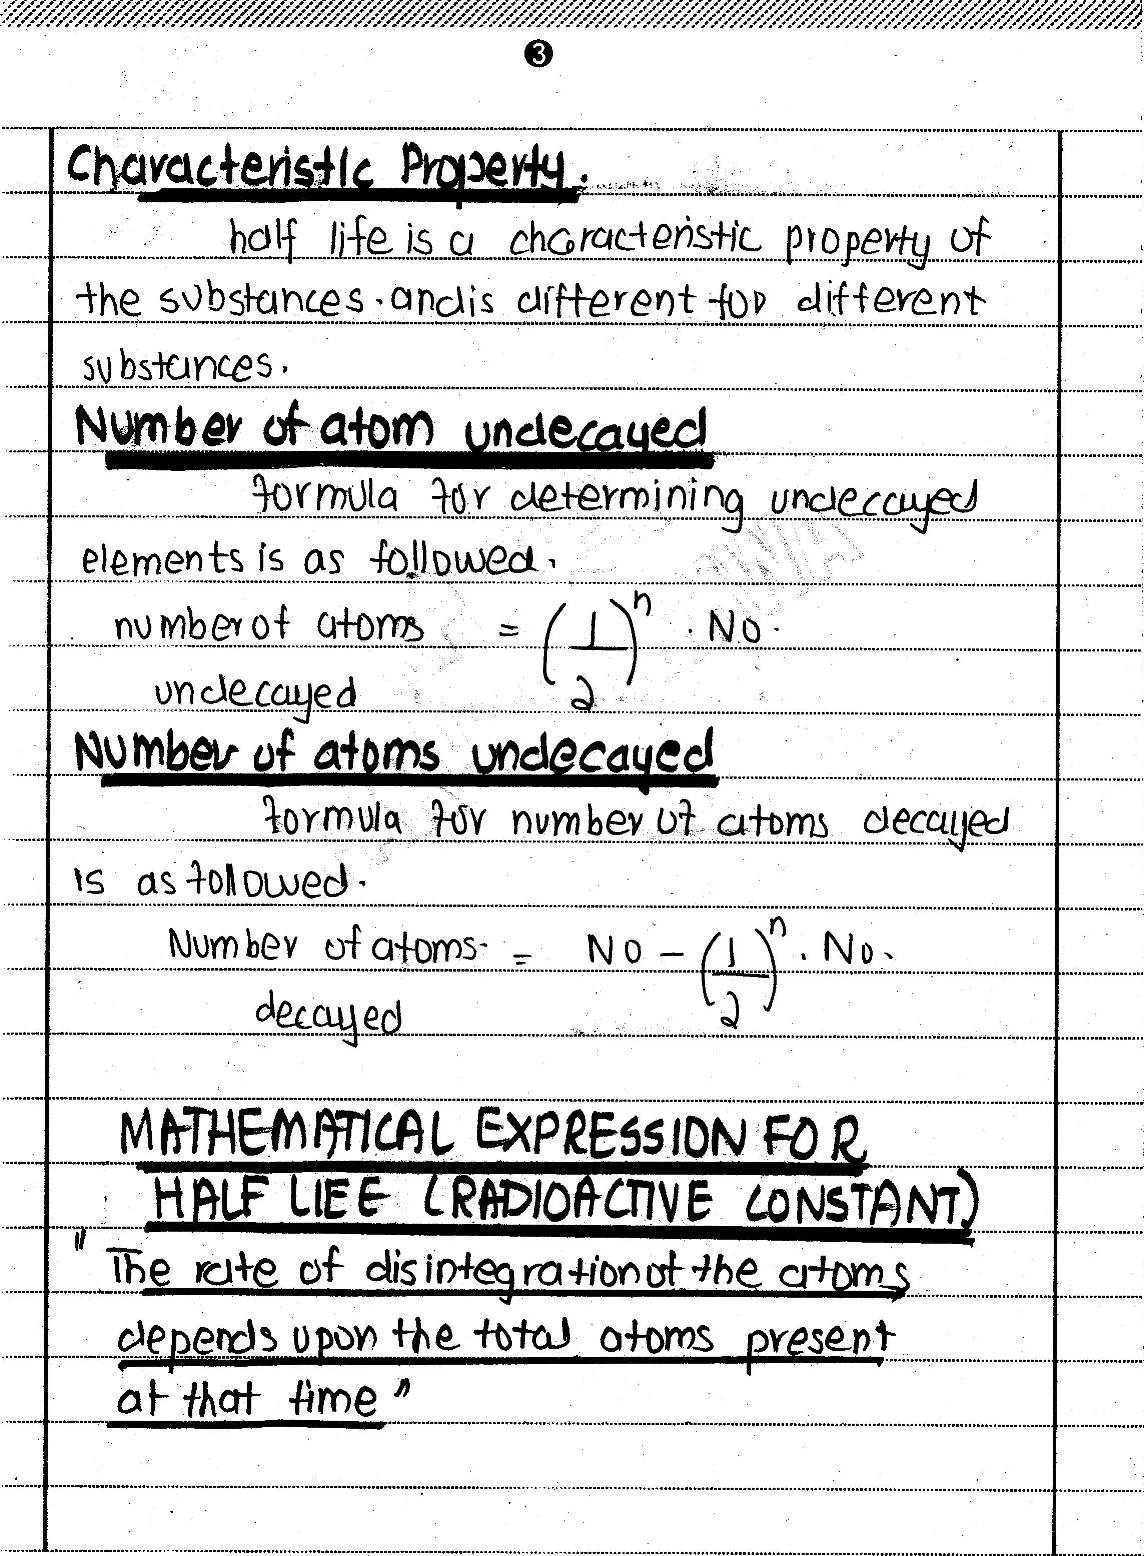 3
Characteristic Property.
half life is a characteristic property of
the substances. and is different for different
substances.
Number of atom undecayed
formula for determining undecayed
elements is as followed.
number of atoms = (1/2)^n . No.
undecayed
Number of atoms undecayed
formula for number of atoms decayed
is as followed.
Number of atoms = No - (1/2)^n . No.
decayed
MATHEMATICAL EXPRESSION FOR
HALF LIEE (RADIOACTIVE CONSTANT)
"The rate of disintegration of the atoms
depends upon the total atoms present
at that time"